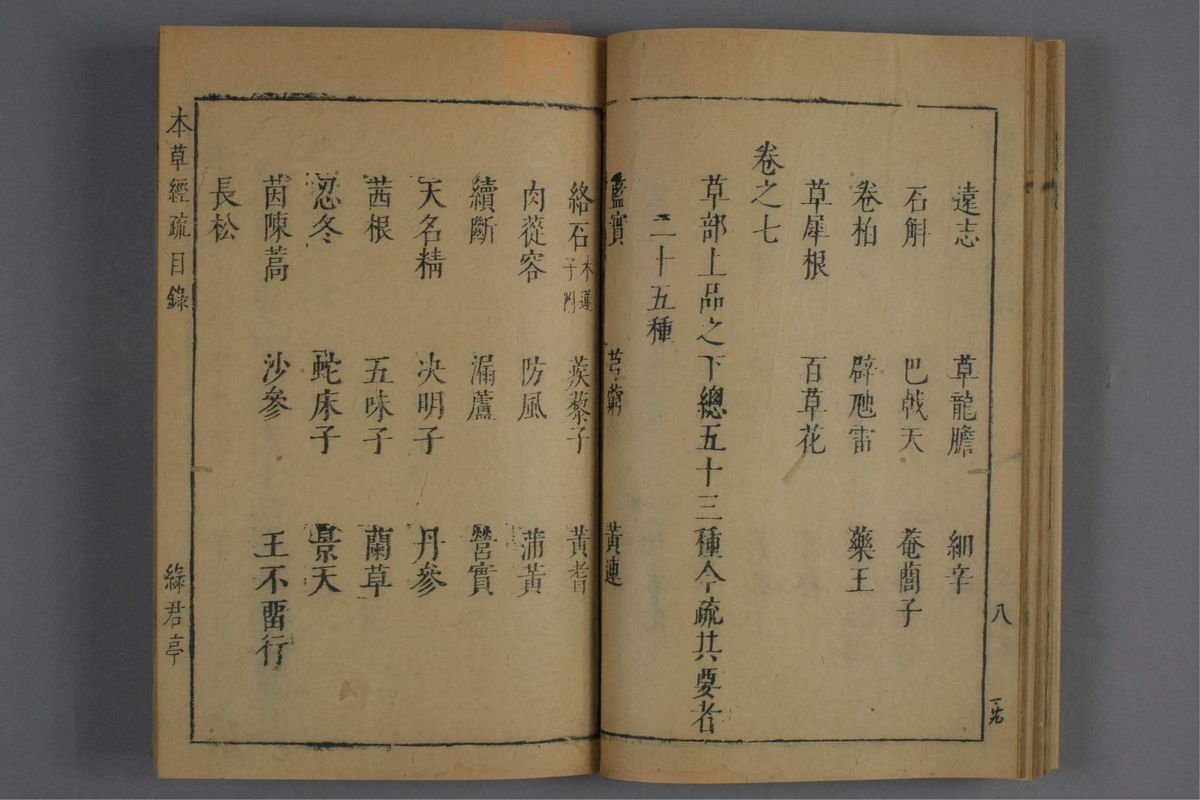 遠志 草龍膽 細辛
石斛 巴戟天 菴藺子
卷柏 辟虺雷 藥王
草犀根 百草花
卷之七
草部上品之下總五十三種今疏其要者
二十五種
藍實 芎藭 黃連
絡石木蓮子附 蒺藜子 黃耆
肉蓯容 防風 蒲黃
續斷 漏蘆 營實
天名精 決明子 丹參
茜根 五味子 蘭草
忍冬 蛇床子 景天
茵陳蒿 沙參 王不畱行
長松
本草經疏目錄 綠君亭
八